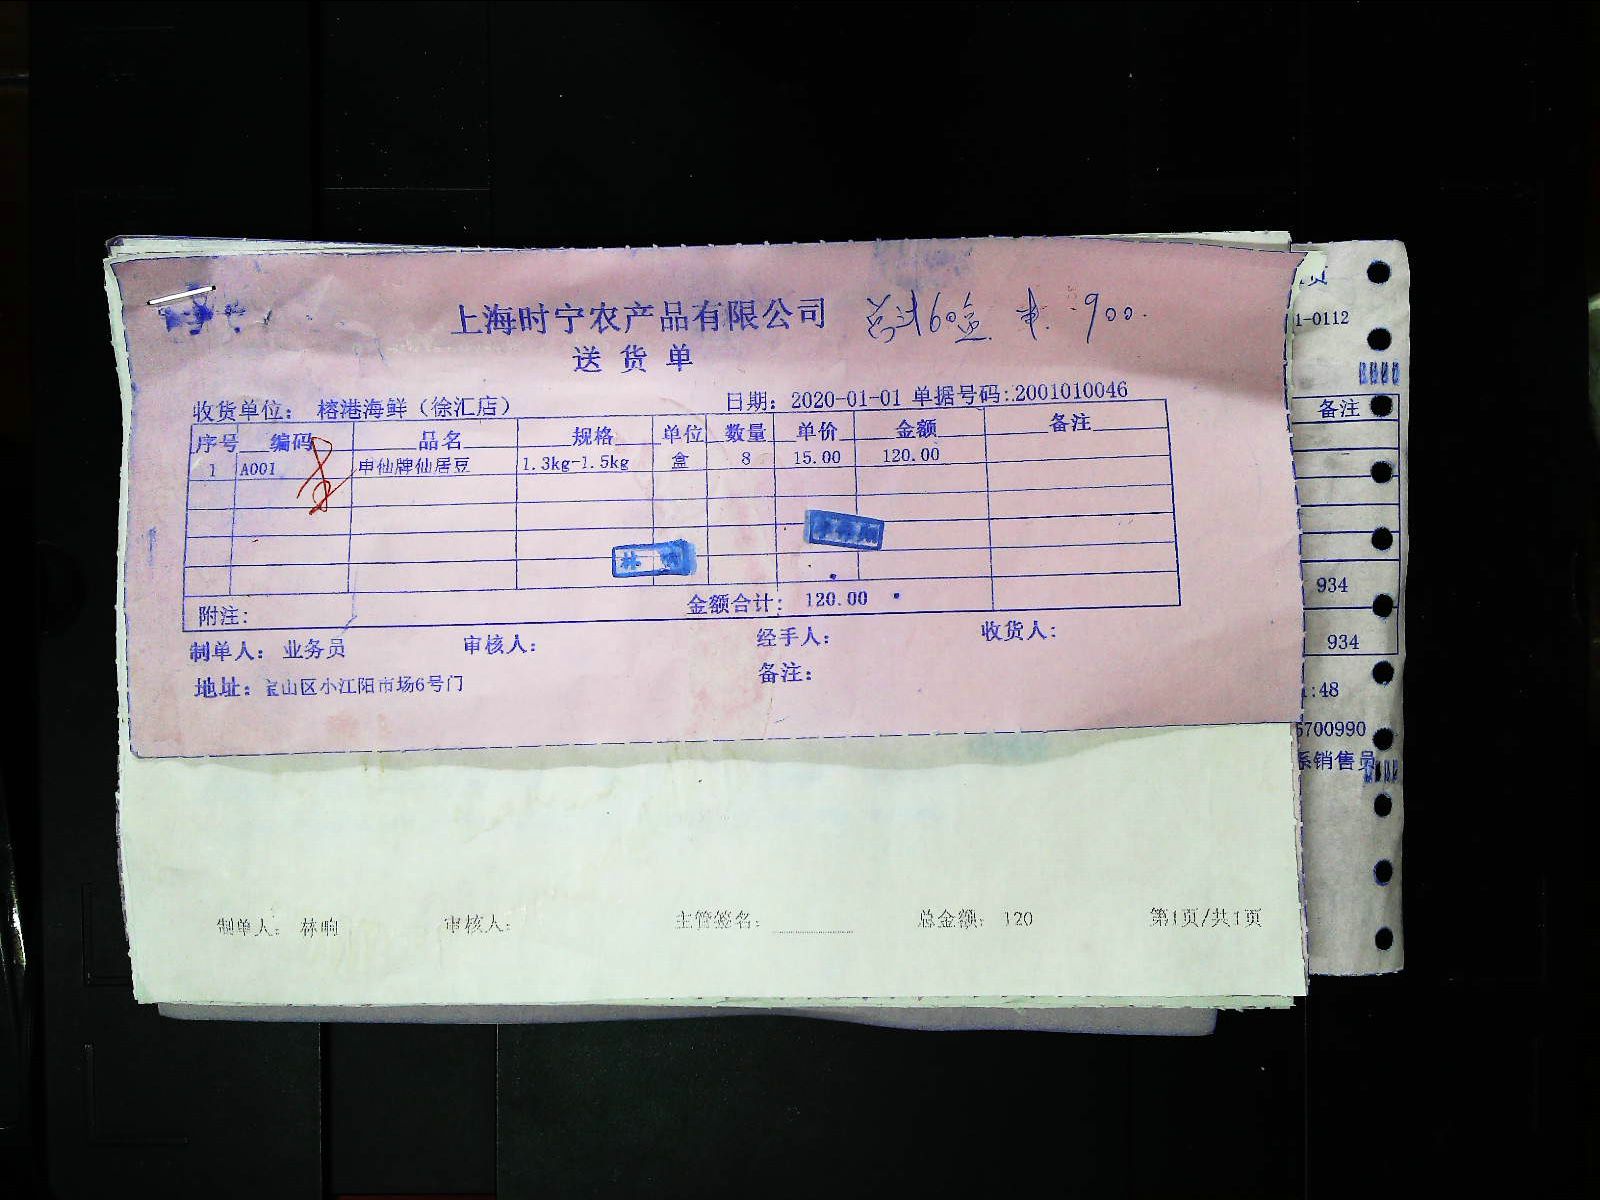 上海时宁农产品有限公司 60盒 900.
送货单
收货单位： 榕港海鲜（徐汇店） 日期： 2020-01-01 单据号码：2001010046
序号 编码 品名 规格 单位 数量 单价 金额 备注
1 A001 申仙牌仙居豆 1.3kg-1.5kg 盒 8 15.00 120.00
林
附注： 金额合计： 120.00
制单人： 业务员 审核人： 经手人： 收货人：
地址：宝山区小江阳市场6号门 备注：
制单人： 林响 审核人： 主管签名： 总金额： 120 第1页/共1页
页
1-0112
备注
934
934
:48
5700990
系销售员